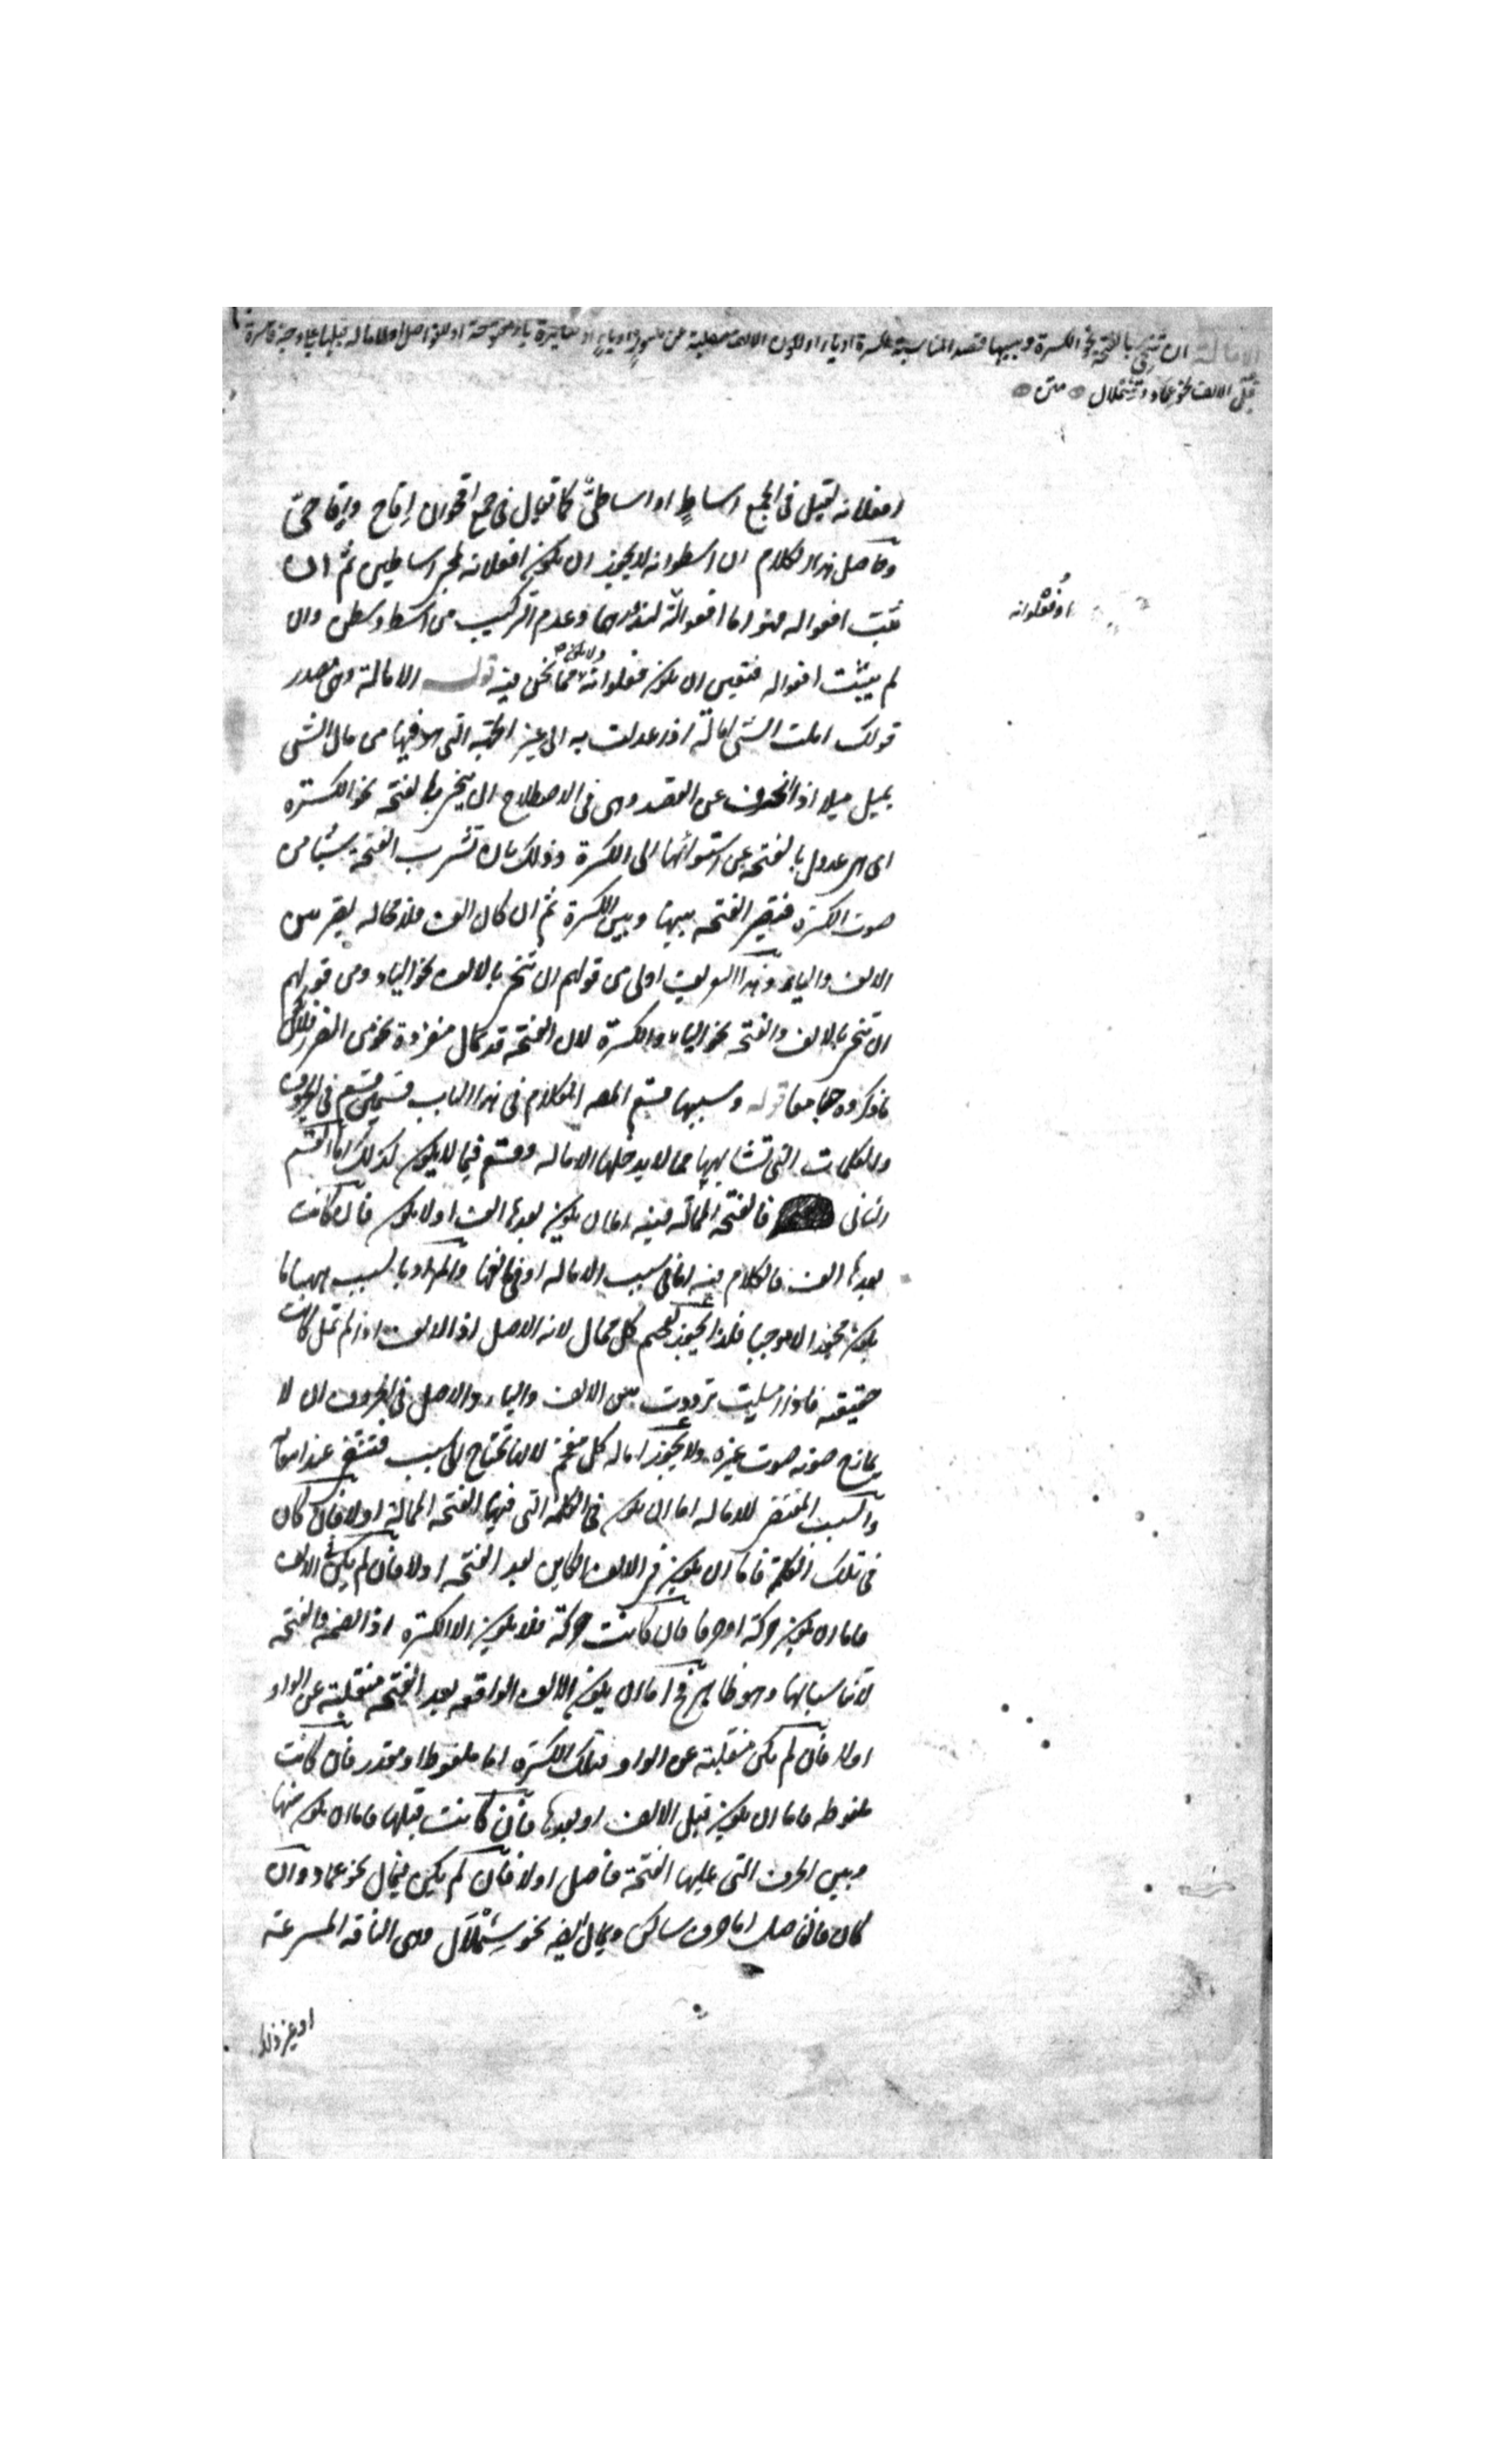 الامالة ان تنحى بالفتحة نحو الكسرة وسببها قصد المناسبة لكسرة او ياء او لكون الالف منقلبة عن مكسور او ياء او صائرة ياء مفتوحة او للفواصل او للامالة قبلها على وجه فالكسرة
قبل الالف نحو عماد وشملال متن
افعلانه لقيل فى الجمع اساطٍ او اساطىّ كما يقال فى جمع اقحوان اقاح واقاحىّ
وحاصل هذا الكلام ان اسطوانه لا يجوز ان يكون افعلانه لمجئ اساطين ثم ان
او فعلوانه
ثبت افعواله فهو اما افعوالة لندورهما وعدم التركيب من اسط وسطن وان
لم يثبت افعواله فتعين ان يكون فعلوانة ولا يكون مما نحن فيه قوله الامالة وهى مصدر
قولك املت الشى امالة اذا عدلت به الى غير الجهة التى هو فيها من مال الشى
يميل ميلا اذا انحرف عن القصد وهى فى الاصطلاح ان ينحى بالفتحه نحو الكسرة
اى هى عدول بالفتحه عن استوائها الى الكسرة وذلك بان تشرب الفتحة شيئا من
صوت الكسرة فتصير الفتحه بينها وبين الكسرة ثم ان كان الف فلا محاله يصير بين
الالف والياء وهذا التعريف اولى من قولهم ان تنحى بالالف نحو الياء ومن قولهم
ان تنحى بالالف والفتحه نحو الياء والكسرة لان الفتحة قد تمال منفردة نحو من الضرر فلا يكون
ما ذكروه جامعا قوله وسببها قسم المص الكلام فى هذا الباب قسمين قسم فى الحروف
والكلمات التى تشابهها مما لا يدخلها الاماله وقسم فيما لا يكون كذلك اما القسم
الثانى فالفتحه الممالة فيه اما ان يكون بعدها الف او لا يكون فان كانت
بعدها الف فالكلام فيه اما فى سبب الاماله او فى مانعها والمراد بالسبب ههنا ما
يكون مجوزا لا موجبا فلذا يجوز تفخيم كل ممال لانه الاصل اذ الالف اذا لم تمل كانت
حقيقه فاذا اميلت ترددت بين الالف والياء والاصل فى الحروف ان لا
يمازج صوته صوت غيره ولا يجوز اماله كل مفخم لانها تحتاج الى سبب فتنتفى عند انتفائه
والسبب المقتضى للاماله اما ان يكون فى الكلمة التى فيها الفتحة الممالة او لا فان كان
فى تلك الكلمة فاما ان يكون فى الالف الكاين بعد الفتحه او لا فان لم يكن فى الالف
فاما ان يكون حركة او حرفا فان كانت حركة فلا يكون الا الكسرة اذ الضمه والفتحه
لا تناسبانها وهو ظاهر ثم اما ان يكون الالف الواقعه بعد الفتحه منقلبة عن الواو
او لا فان لم يكن منقلبة عن الواو فتلك الكسرة اما ملفوظ او مقدر فان كانت
ملفوظه فاما ان يكون قبل الالف او بعدها فان كانت قبلها فاما ان يكون بينها
وبين الحرف التى عليها الفتحة فاصل او لا فان لم يكن فيمال نحو عماد وان
كان فالفاصل اما حرف ساكن ويمال ايضه نحو شملال وهى الناقه المسرعة
او غير ذلك